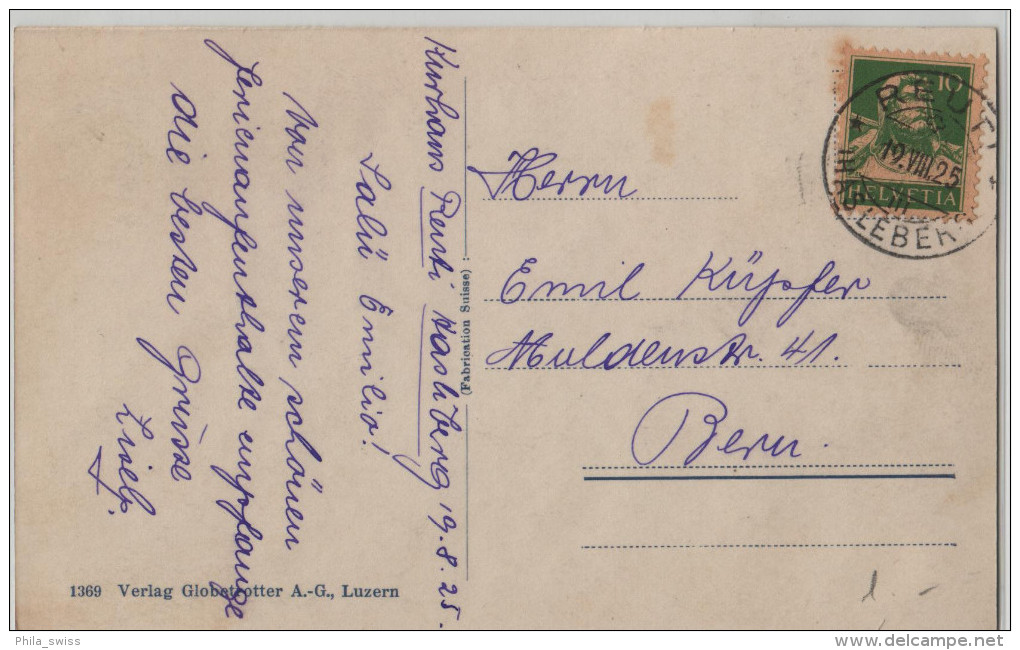 Kurhaus Reuti Hasliberg 19.8.25.
Salü Emilio!
Von unserem schönen
Ferienaufenthalte empfange
die besten Grüsse
(Fabrication Suisse) :
Herrn
Emil Küpfer
Muldenstr. 41.
Bern.
10
HELVETIA
REUTI
19.VIII.25
HASLEBERG
1369 Verlag Globetrotter A.-G., Luzern
1.-
Phila_swiss
delcampe.net